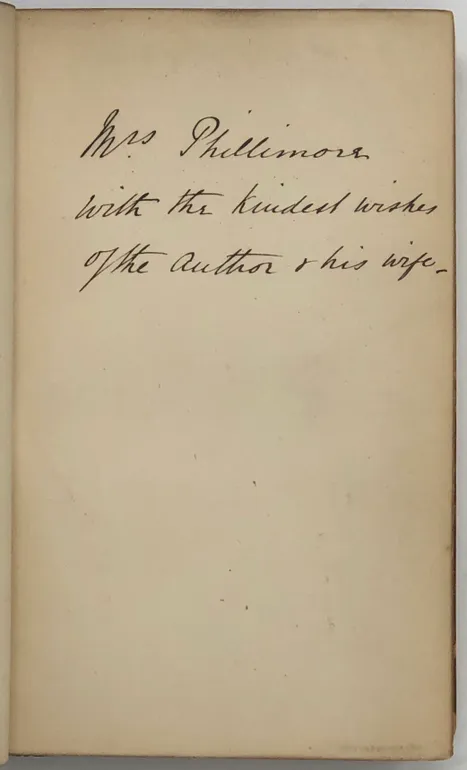 Mrs. Phillimore
with the kindest wishes
of the Author & his wife-